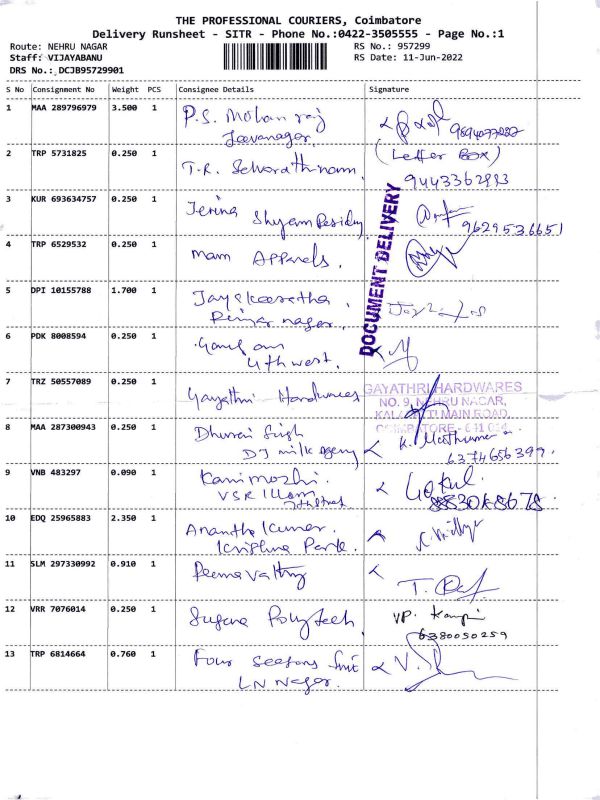 THE PROFESSIONAL COURIERS, Coimbatore
Delivery Runsheet - SITR - Phone No.:0422-3505555 - Page No.:1
Route: NEHRU NAGAR
RS No.: 957299
Staff: VIJAYABANU
RS Date: 11-Jun-2022
DRS No.: DCJB95729901
S No Consignment No Weight PCS Consignee Details Signature
1 MAA 289796979 3.500 1 P.S. Mohan raj
Jeevanagar.
2 TRP 5731825 0.250 1 T.R. Selvarathinam (Letter BOX)
3 KUR 693634757 0.250 1 Jerina Shyam 9629536651
4 TRP 6529532 0.250 1 mam Apparels.
DOCUMENT DELIVERY
5 DPI 10155788 1.700 1
nagar.
6 PDK 8008594 0.250 1
4th west.
7 TRZ 50557089 0.250 1 Gayathri Hardwares
GAYATHRI HARDWARES
NO. 9, NEHRU NAGAR,
MAIN ROAD,
8 MAA 287300943 0.250 1 Dhurai Singh
DJ milk agency 6374656399.
9 VNB 483297 0.090 1 Kanimozhi. Gokul.
VSR
10 EDQ 25965883 2.350 1 Anantha Kumar.
Krishna Park.
11 SLM 297330992 0.910 1 T.
12 VRR 7076014 0.250 1 Suguna Polytech VP.
6380050259
13 TRP 6814664 0.760 1 Four Seasons fruit
LN Nagar.